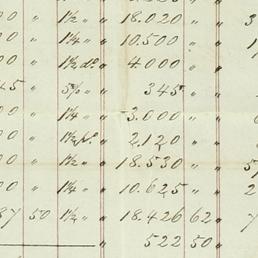 00 " 1½ " " 18.020 " " 3
00 " 1¼ " " 10.500 " "
00 " 1½ do " 4.000 " "
45 " 5% " 345 " "
00 " 1¼ " " 3.000 " "
00 " 1½ " 2.120 " "
00 " 1½ " " 18.530 " " 5
00 " 1¼ " " 10.625 " "
37 50 1½ " " 18.426 62 " 7
" 522 50 "